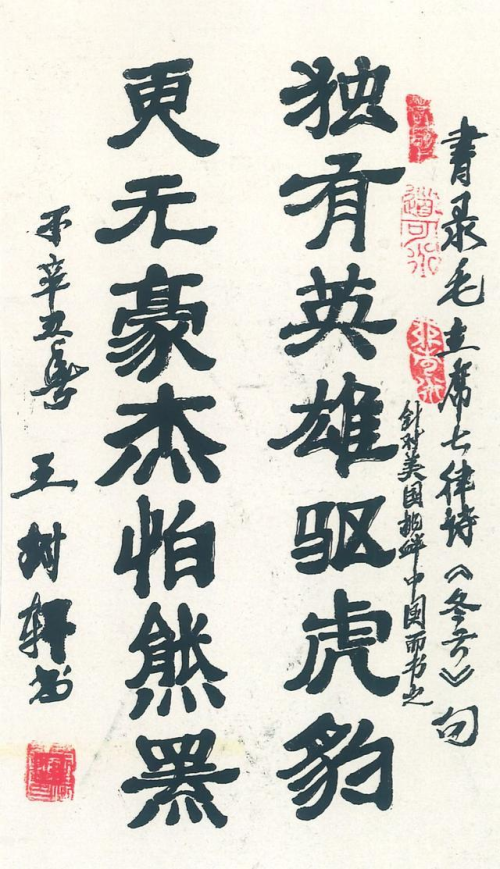 書录毛主席七律诗《冬云》句
针对美国挑衅中国而书之
独有英雄驱虎豹
更无豪杰怕熊罴
于辛丑春 王树轩书